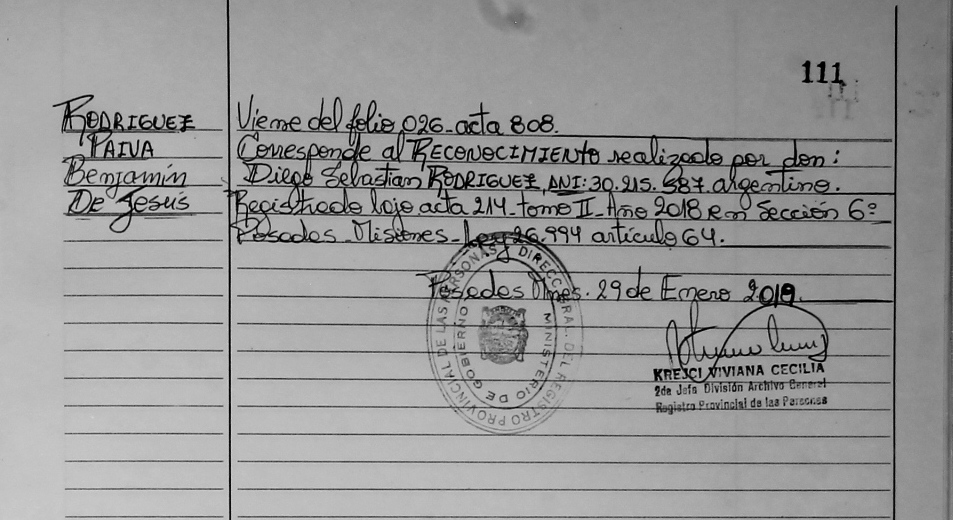 111
RODRIGUEZ
PAIVA
Benjamín
De Jesús
Viene del folio 026-acta 808.
Corresponde al RECONOCIMIENTO realizado por don:
Diego Sebastian RODRIGUEZ, DNI: 30.215.587. argentino.
Registrado bajo acta 214-tomo II-Año 2018 en Sección 6º
Posadas-Misiones-Ley 26.994 artículo 64.
Posadas Mnes. 29 de Enero 2019.
REGISTRO PROVINCIAL DE LAS PERSONAS
MINISTERIO DE GOBIERNO
KREJCI VIVIANA CECILIA
2da Jefa División Archivo General
Registro Provincial de las Personas